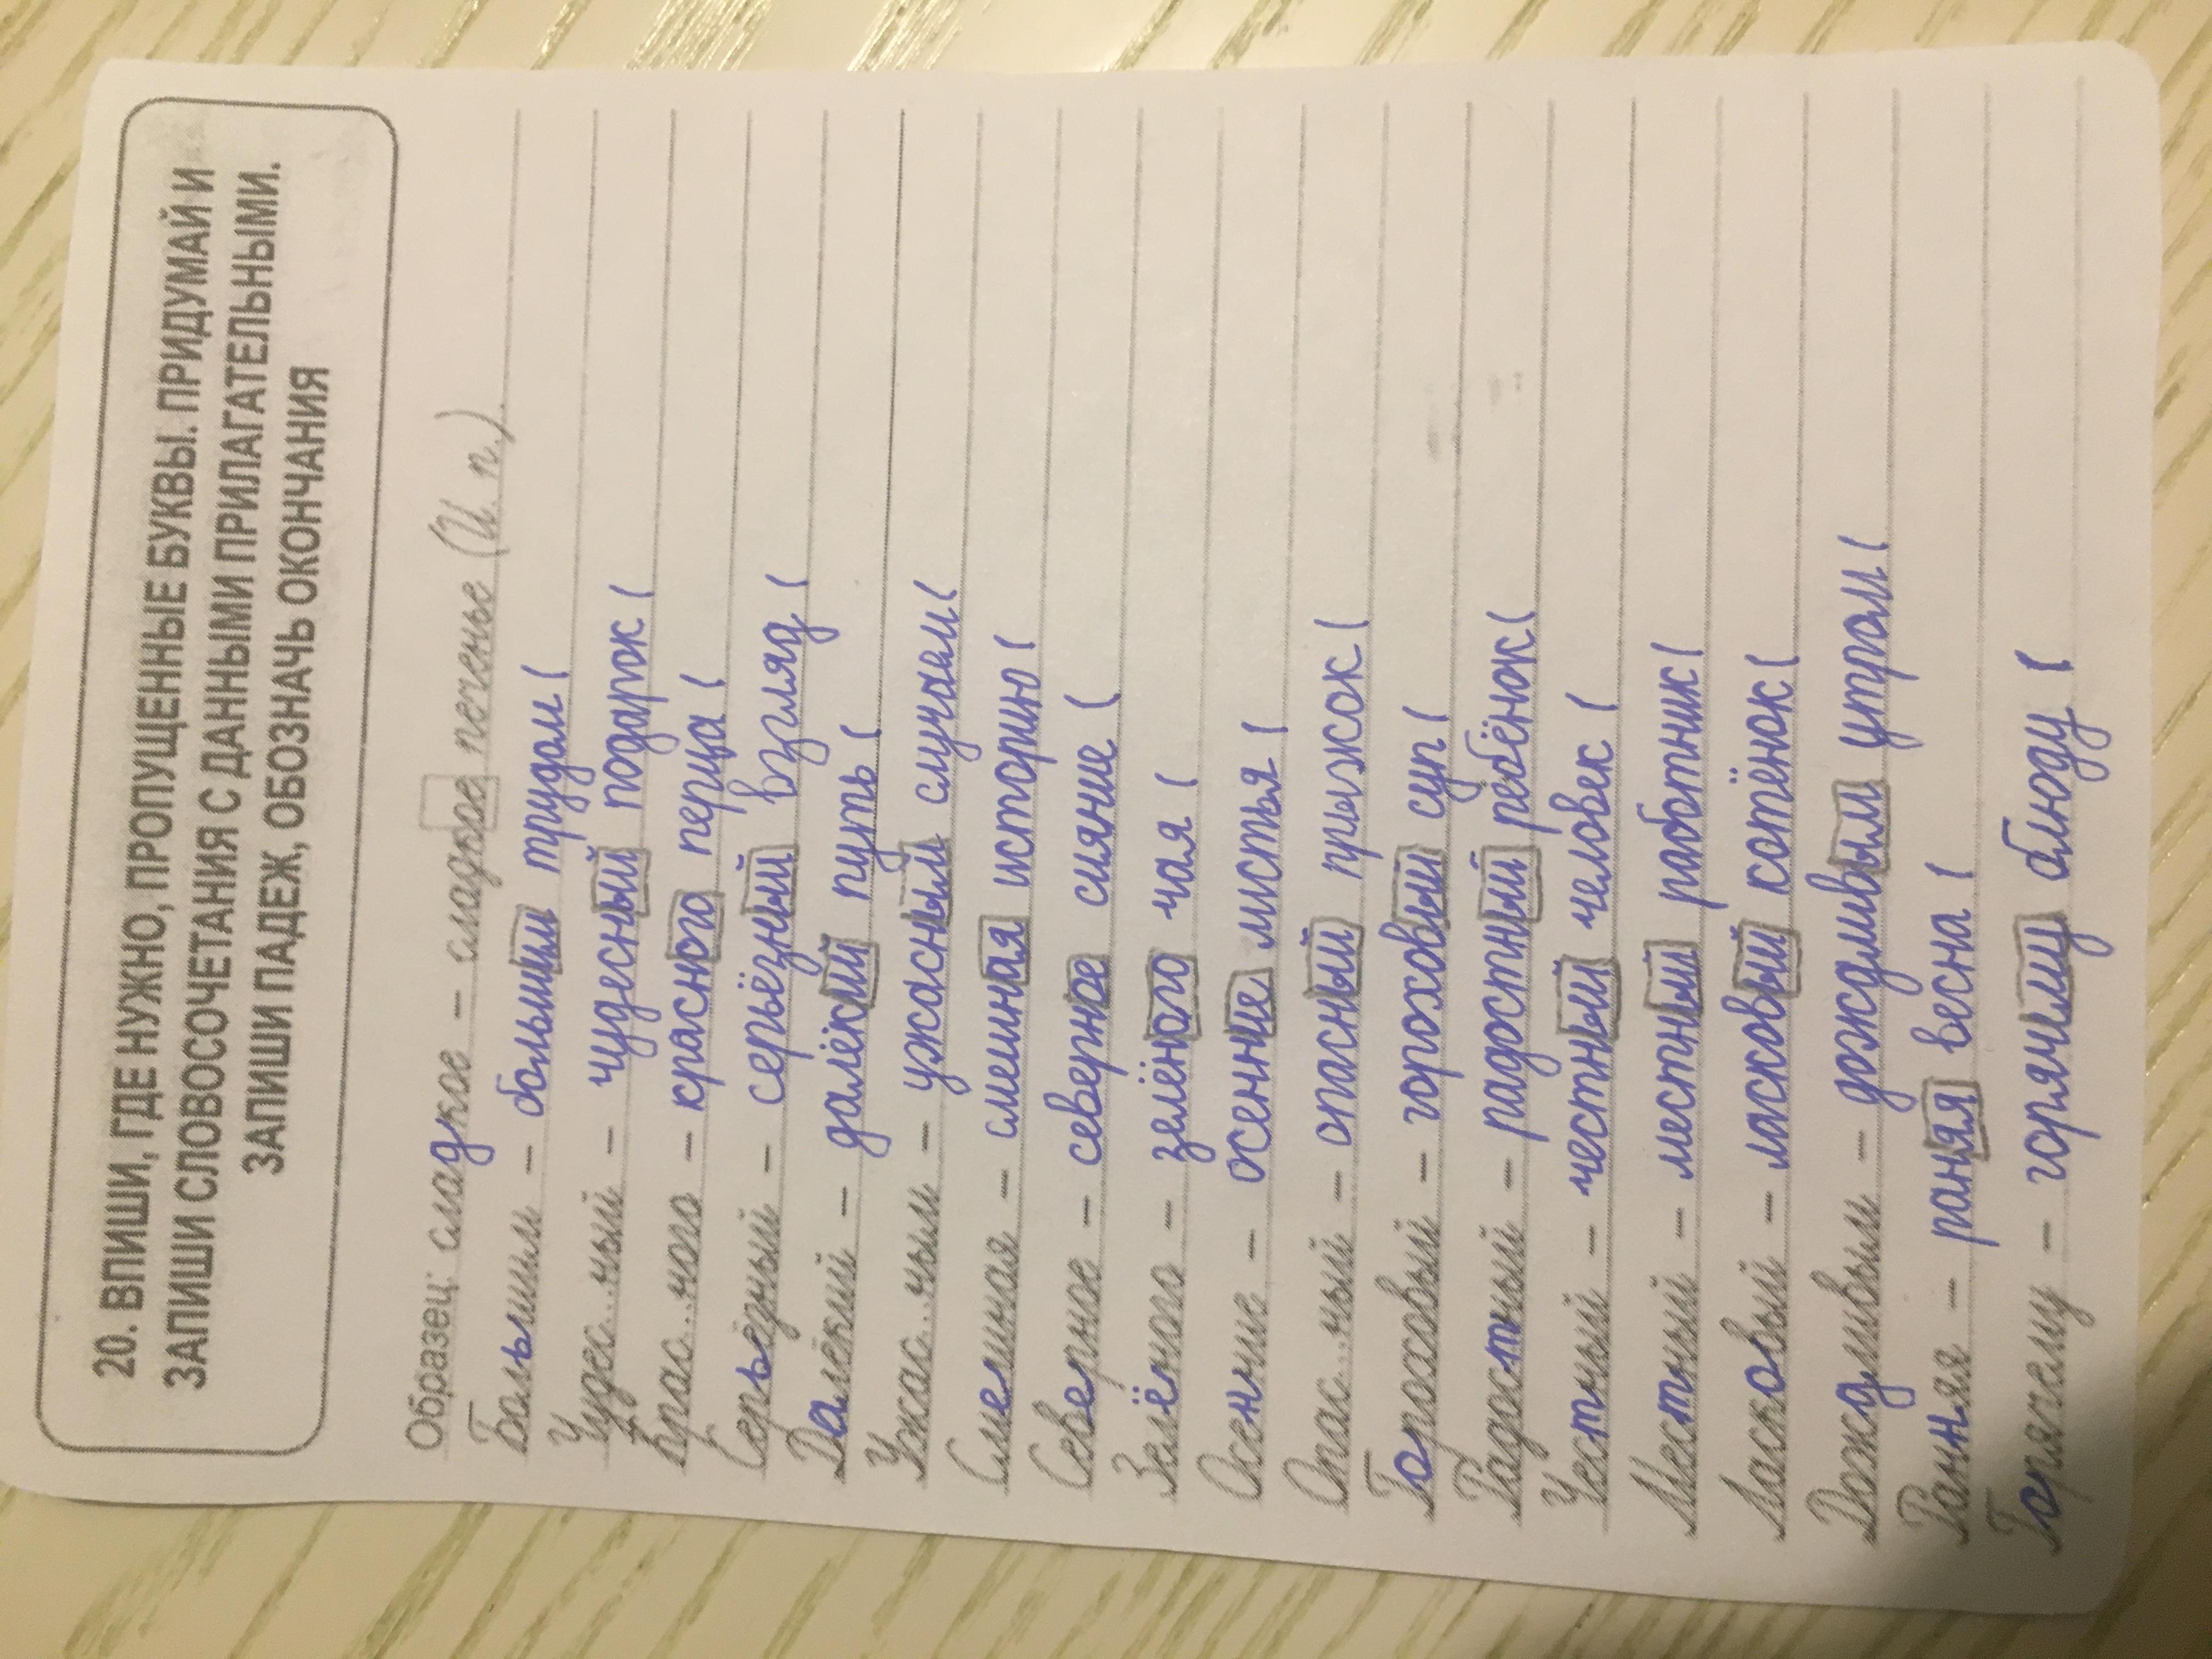 20. ВПИШИ, ГДЕ НУЖНО, ПРОПУЩЕННЫЕ БУКВЫ. ПРИДУМАЙ И
ЗАПИШИ СЛОВОСОЧЕТАНИЯ С ДАННЫМИ ПРИЛАГАТЕЛЬНЫМИ.
ЗАПИШИ ПАДЕЖ, ОБОЗНАЧЬ ОКОНЧАНИЯ
Образец: сладкое – сладкое печенье (И. п.).
Большим – большим трудом (
Чудес...ный – чудесный подарок (
Крас...ного – красного перца (
Серьёзный – серьёзный взгляд (
Далёкий – далёкий путь (
Ужас...ным – ужасным случаем (
Смешная – смешная историю (
Северное – северное сияние (
Зелёного – зелёного чая (
Осенние – осенние листья (
Опас...ный – опасный прыжок (
Гороховый – гороховый суп (
Радостный – радостный ребёнок (
Честный – честный человек (
Местный – местный работник (
Ласковый – ласковый котёнок (
Дождливым – дождливым утром (
Ранняя – раняя весна (
Горячему – горячему блюду (